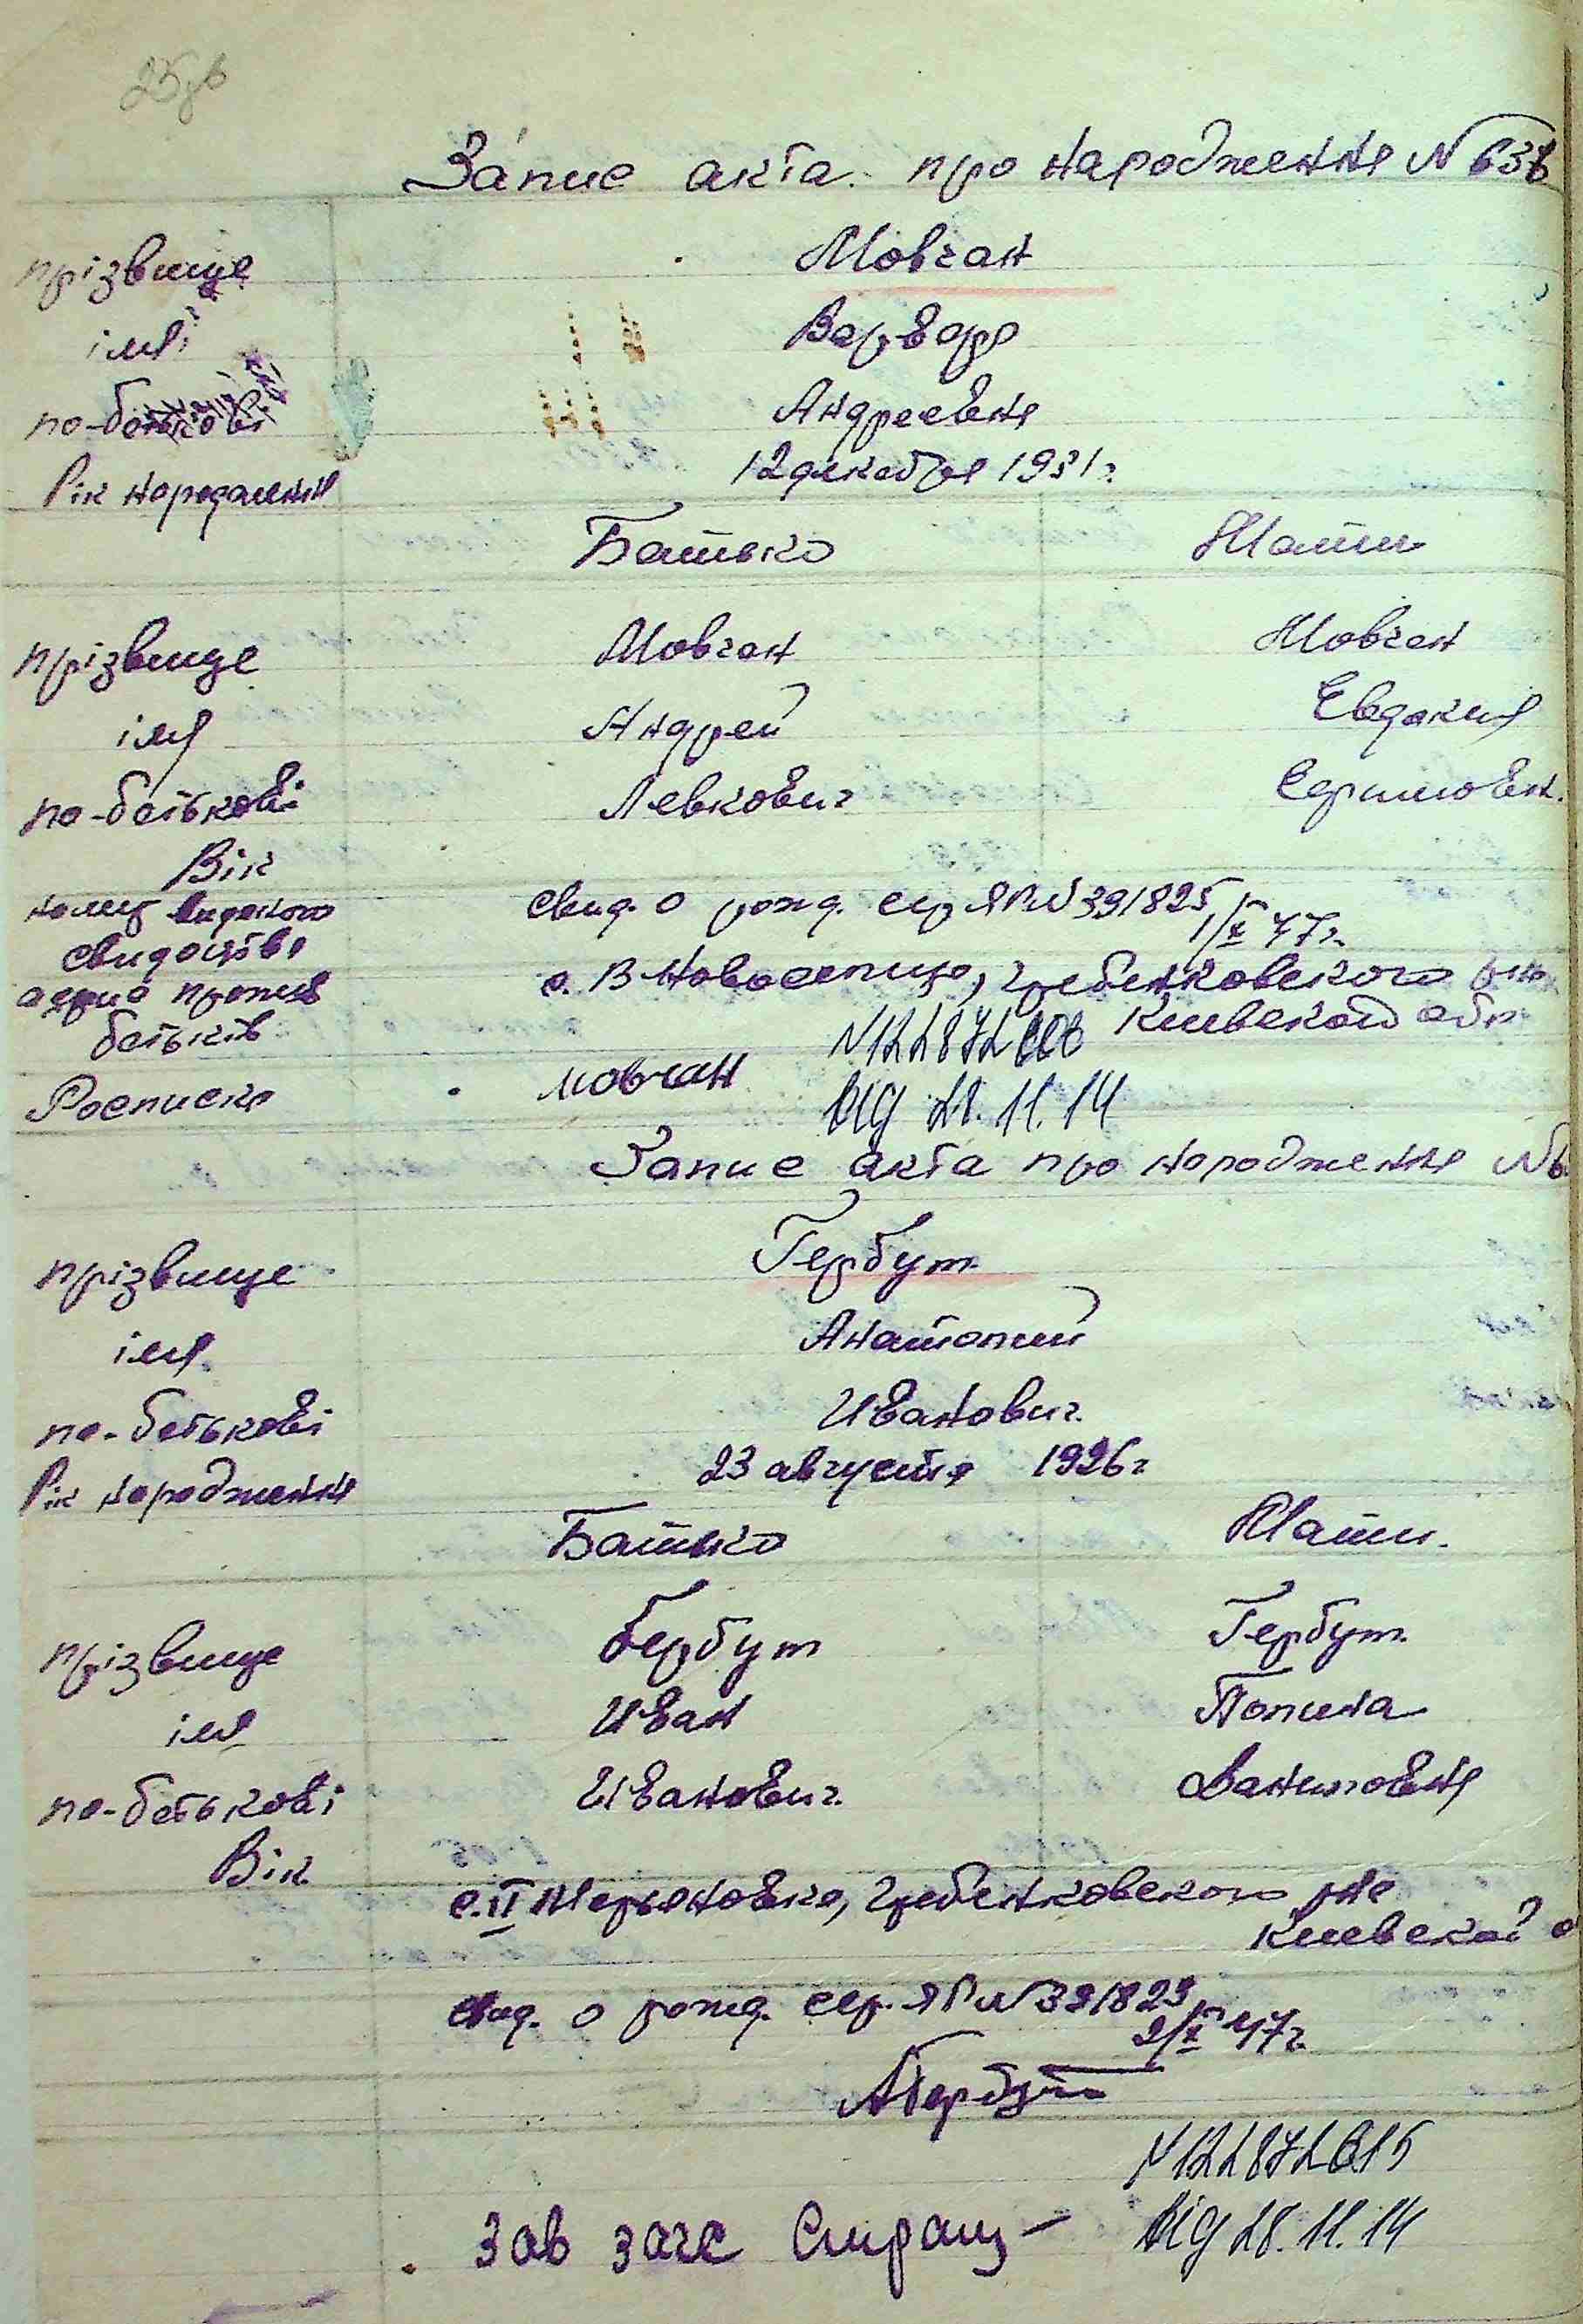 Запис акта про народження N 637
прізвище Мовчан
імя Варвара
по-батькові Андреевна
Рік народження 12 декабря 1931 г.
Батько Мати
прізвище Мовчан Мовчан
імя Андрей Евдокия
по-батькові Левкович
Вік
номер виданого свид. о рожд. сер ЯР N 391825
свидоцтва 1/X 47 г.
адриса прожив с. В Новоселица, Гребенковского р-на
батьків N122872 Киевской обл
Росписка Мовчан
від 28.11.14
Запис акта про народження N
прізвище Гербут
імя Анатолий
по-батькові Иванович
Рік народження 23 августа 1926 г
Батько Мати
прізвище Гербут Гербут
імя Иван Полина
по-батькові Иванович Даниловна
Вік
с. II Марьяновка, Гребенковского р-на
Киевской о
свид. о рожд. сер. ЯР N 391823
2/X 47 г.
АГербут
N122872615
Зав загс від 28.11.14